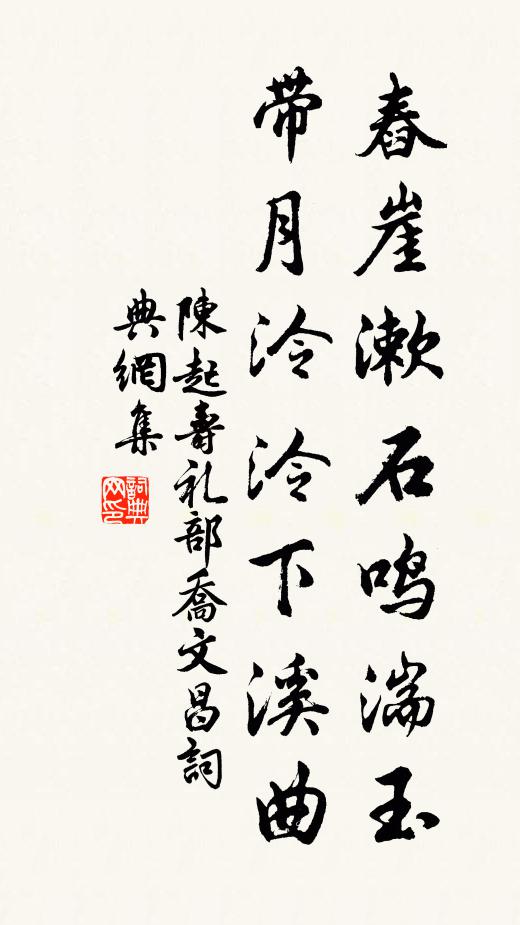 舂崖漱石鸣湍玉
带月泠泠下溪曲
陳起壽礼部喬文昌詞
典網集
詞典网印